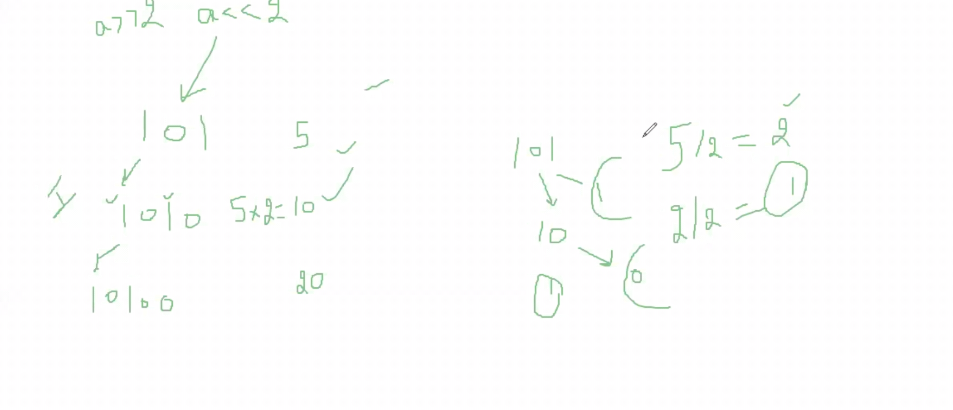 a>>2 a<<2
101 5
1010 5×2=10
10100 20
101 1 5/2=2
10 0 2/2=1
1